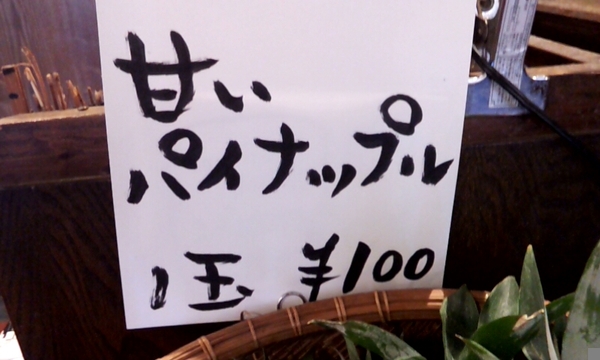 甘い
パイナップル
1玉 ¥100